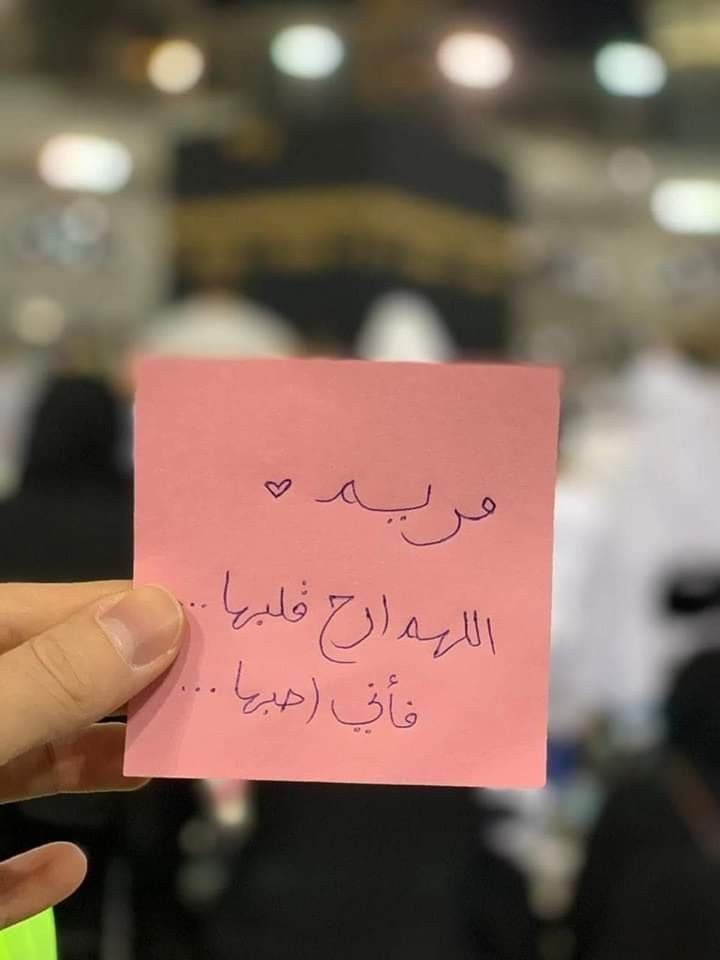 مريم ♡
اللهم ارح قلبها ...
فأني احبها ...